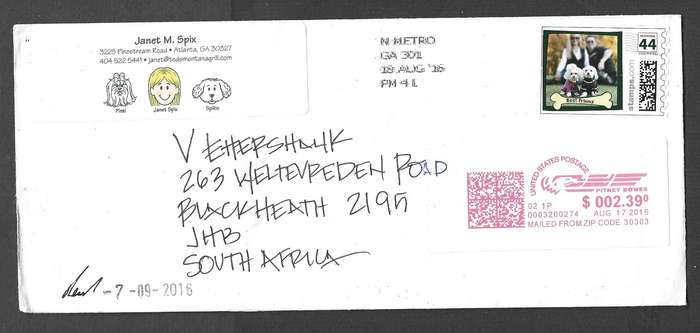 Janet M. Spix
3225 Pinestream Road • Atlanta, GA 30327
404 522 5441 • janet@todomontanagrill.com
Pixel
Janet Spix
Spike
N METRO
GA 301
18 AUG '16
PM 4 L
44
stamps.com
Best Friend
V EHERSHAUK
263 WELTEVREDEN ROAD
BLACKHEATH 2195
JHB
SOUTH AFRICA
UNITED STATES POSTAGE
PITNEY BOWES
02 1P
$ 002.39⁰
0003200274 AUG 17 2016
MAILED FROM ZIP CODE 30303
-7-09-2016